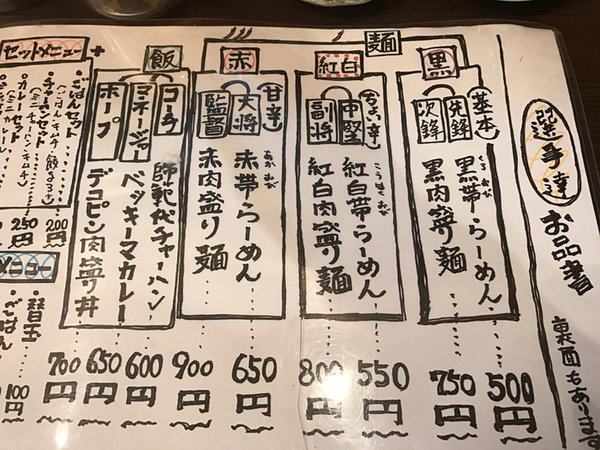 選手達
お品書
裏面もあります
麺
黒
基本
先鋒
黒帯らーめん
くろおび
500円
次鋒
黒肉盛り麺
750円
紅白
中堅
紅白帯らーめん
こうはくおび
550円
副将
紅白肉盛り麺
800円
赤
甘辛
大将
赤帯らーめん
あかおび
650円
監督
赤肉盛り麺
900円
飯
コーチ
師範代チャーハン
600円
マネージャー
ベッキーマカレー
650円
ホープ
デコピン肉盛り丼
700円
セットメニュー
ごはんセット
200円
チャーハンセット
(ミニチャーハン・キムチ)
250円
カレーセット
メニュー
替玉
100円
ごはん